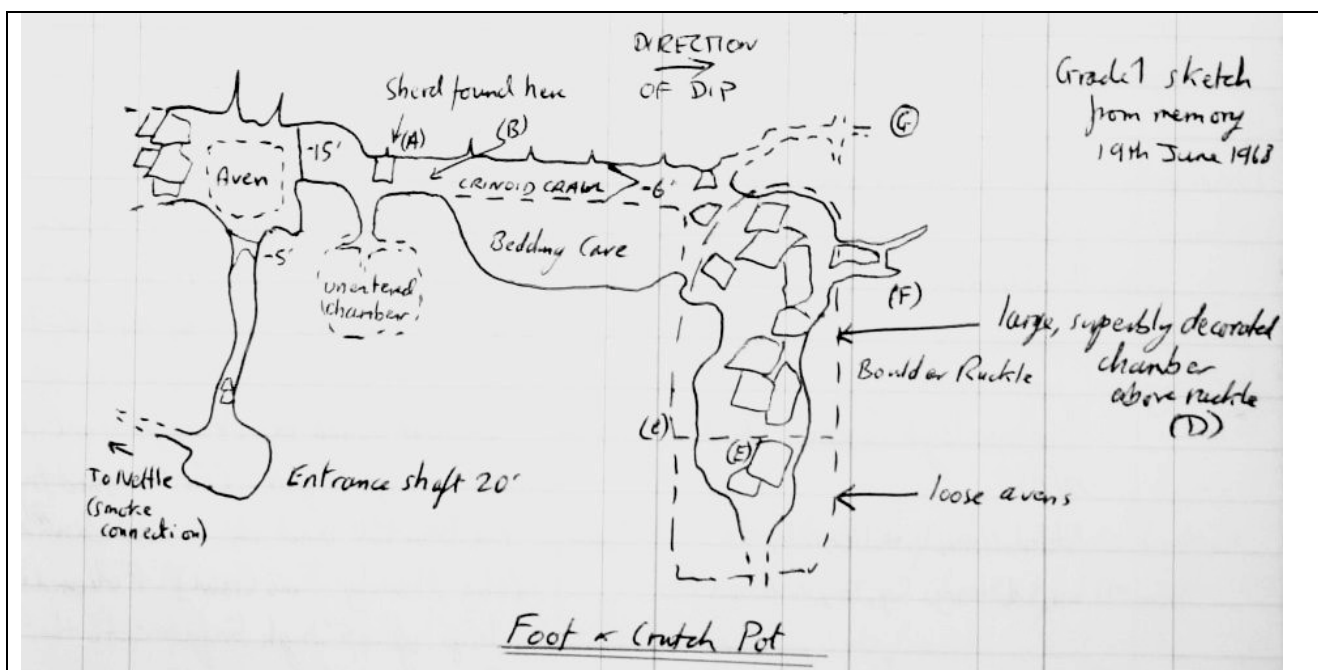 DIRECTION
OF DIP
Grade 1 sketch
from memory
19th June 1968
Sherd found here
(A)
(B)
G
Aven
-15'
CRINOID CRAWL
-6'
-5'
Bedding Cave
unentered
chamber
(F)
large, superbly decorated
chamber
above ruckle
(D)
Boulder Ruckle
(E)
To Nettle
(smoke
connection)
Entrance shaft 20'
loose avens
Foot & Crutch Pot